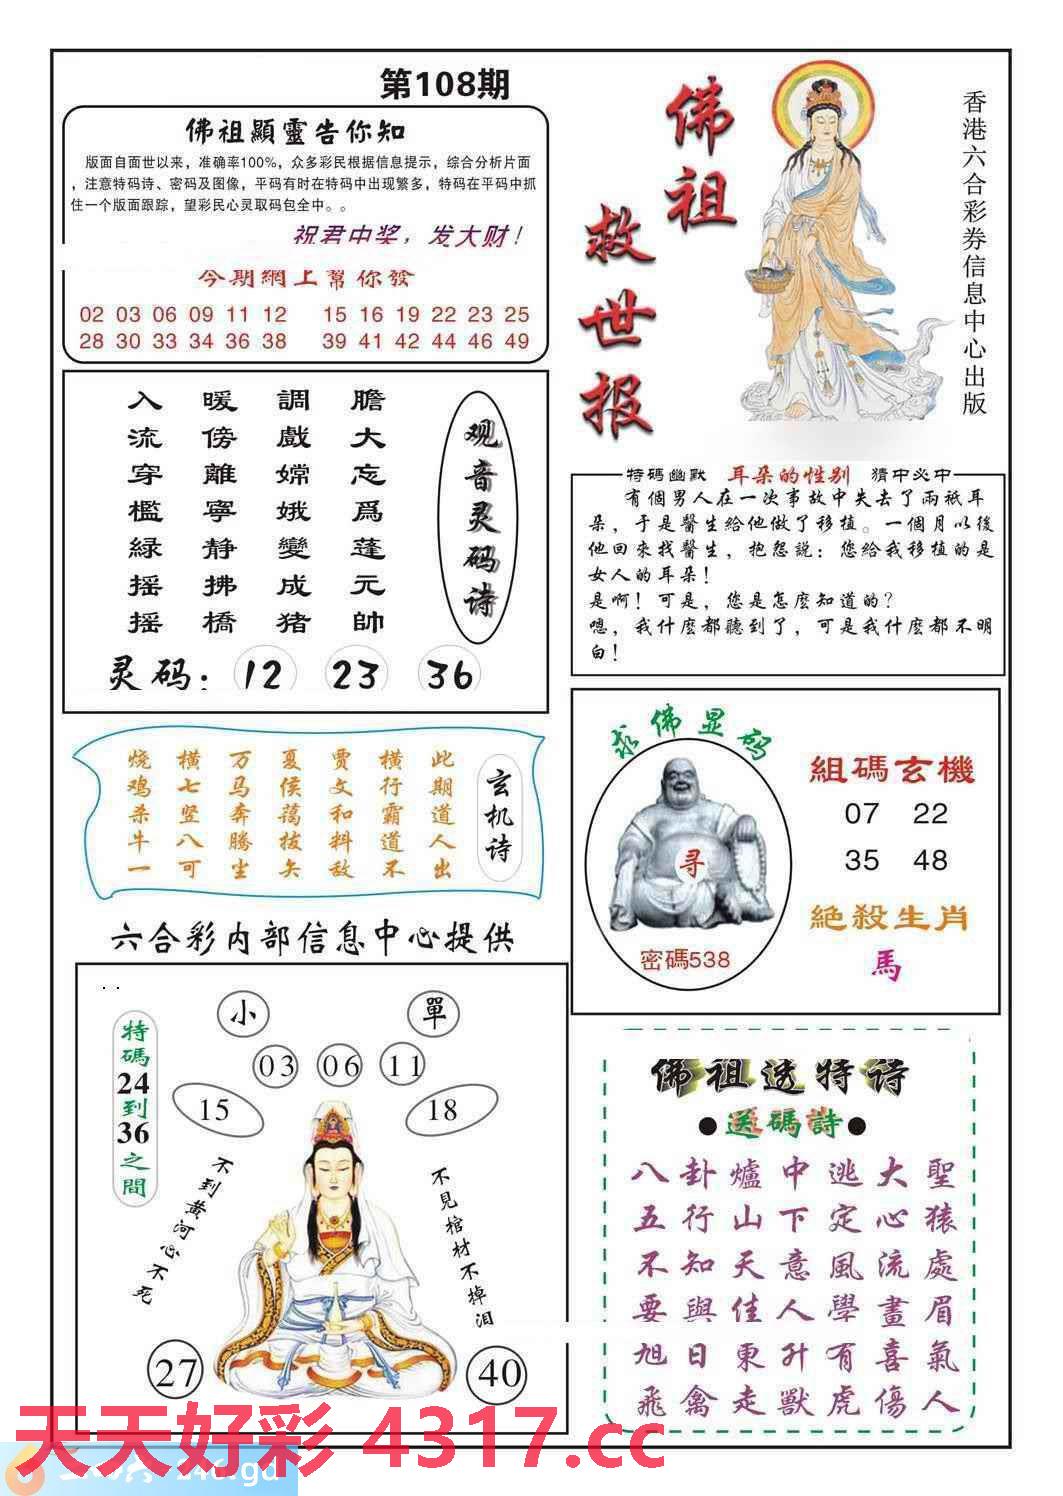 第108期
佛祖顯靈告你知
版面自面世以来，准确率100%，众多彩民根据信息提示，综合分析片面
，注意特码诗、密码及图像，平码有时在特码中出现繁多，特码在平码中抓
住一个版面跟踪，望彩民心灵取码包全中。。
祝君中奖，发大财！
今期網上幫你發
02 03 06 09 11 12 15 16 19 22 23 25
28 30 33 34 36 38 39 41 42 44 46 49
佛祖
救世报
香港六合彩券信息中心出版
观音灵码诗
膽大忘爲蓬元帥
調戲嫦娥變成猪
暖傍離寧静拂橋
入流穿檻緑摇摇
灵码：12 23 36
特碼幽默 耳朵的性别 猜中必中
有個男人在一次事故中失去了兩祇耳
朵，于是醫生給他做了移植。一個月以後
他回來找醫生，抱怨説：您給我移植的是
女人的耳朵！
是啊！可是，您是怎麽知道的？
嗯，我什麽都聽到了，可是我什麽都不明
白！
玄机诗
此期道人出
横行霸道不
贾文和料敌
夏侯蔼拔矢
万马奔腾生
横七竖八可
烧鸡杀牛一
求佛显码
寻
密碼538
組碼玄機
07 22
35 48
絶殺生肖
馬
六合彩内部信息中心提供
小 單
03 06 11
15 18
特碼24到36之間
不到黄河心不死
不見棺材不掉泪
27 40
佛祖透特诗
●送碼詩●
八卦爐中逃大聖
五行山下定心猿
不知天意風流處
要與佳人學畫眉
旭日東升有喜氣
飛禽走獸虎傷人
天天好彩 4317.cc
246.gd